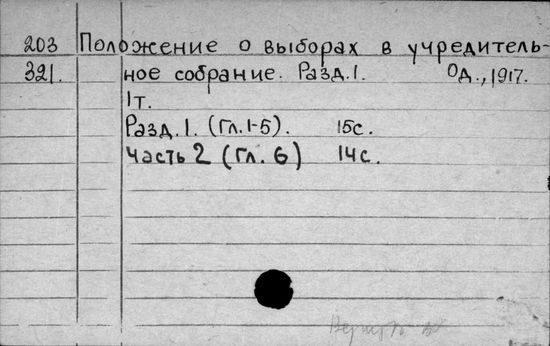 203 Положение о выборах в учредитель-
321. ное собрание. Разд. 1. Од., 1917.
1т.
Разд. 1. (Гл. 1-5). 15с.
Часть 2 (Гл. 6) 14с.